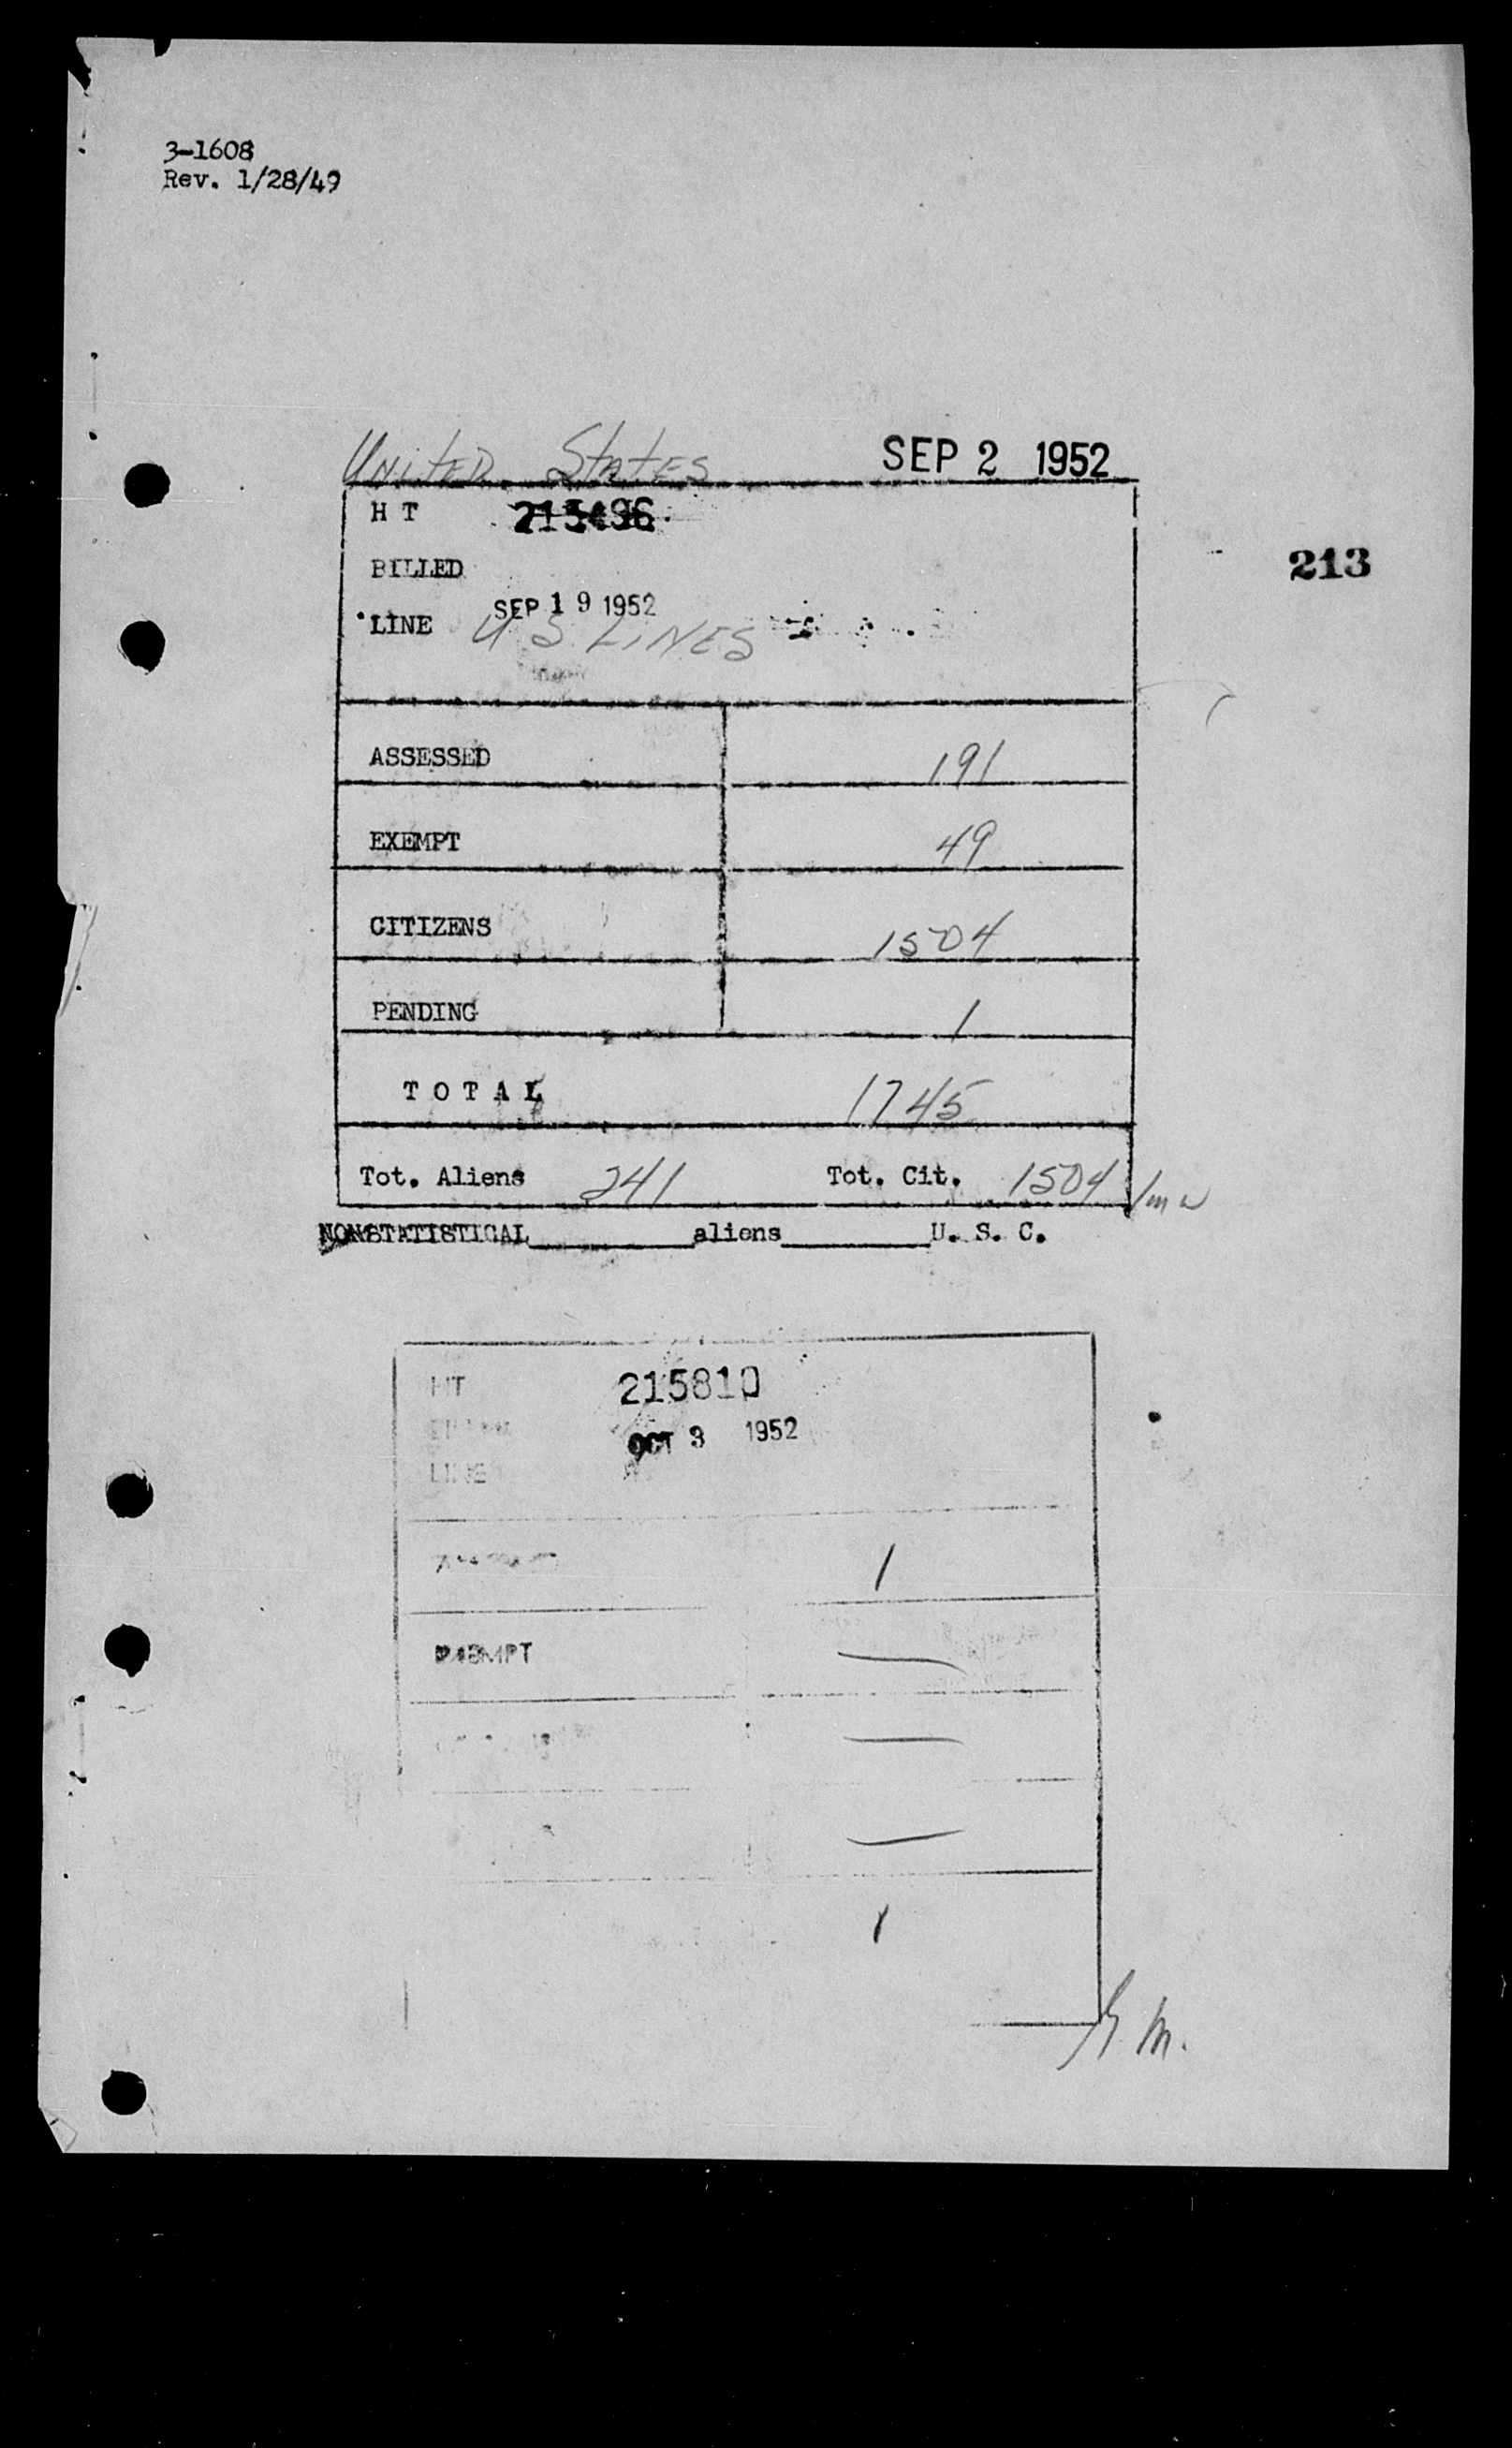 3-1608
Rev. 1/28/49
United States SEP 2 1952
H T 215496
213
BILLED
SEP 19 1952
LINE U S LINES
ASSESSED 191
EXEMPT 49
CITIZENS 1504
PENDING 1
T O T A L 1745
Tot. Aliens 241 Tot. Cit. 1504
NONSTATISTICAL aliens U. S. C.
HT 215810
OCT 3 1952
LINE
1
EXEMPT —
—
—
1